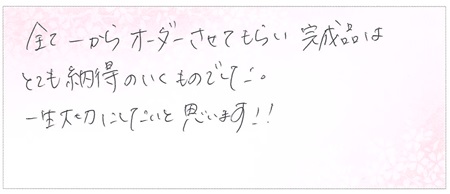 全て一からオーダーさせてもらい完成品は
とても納得のいくものでした。
一生大切にしたいと思います!!